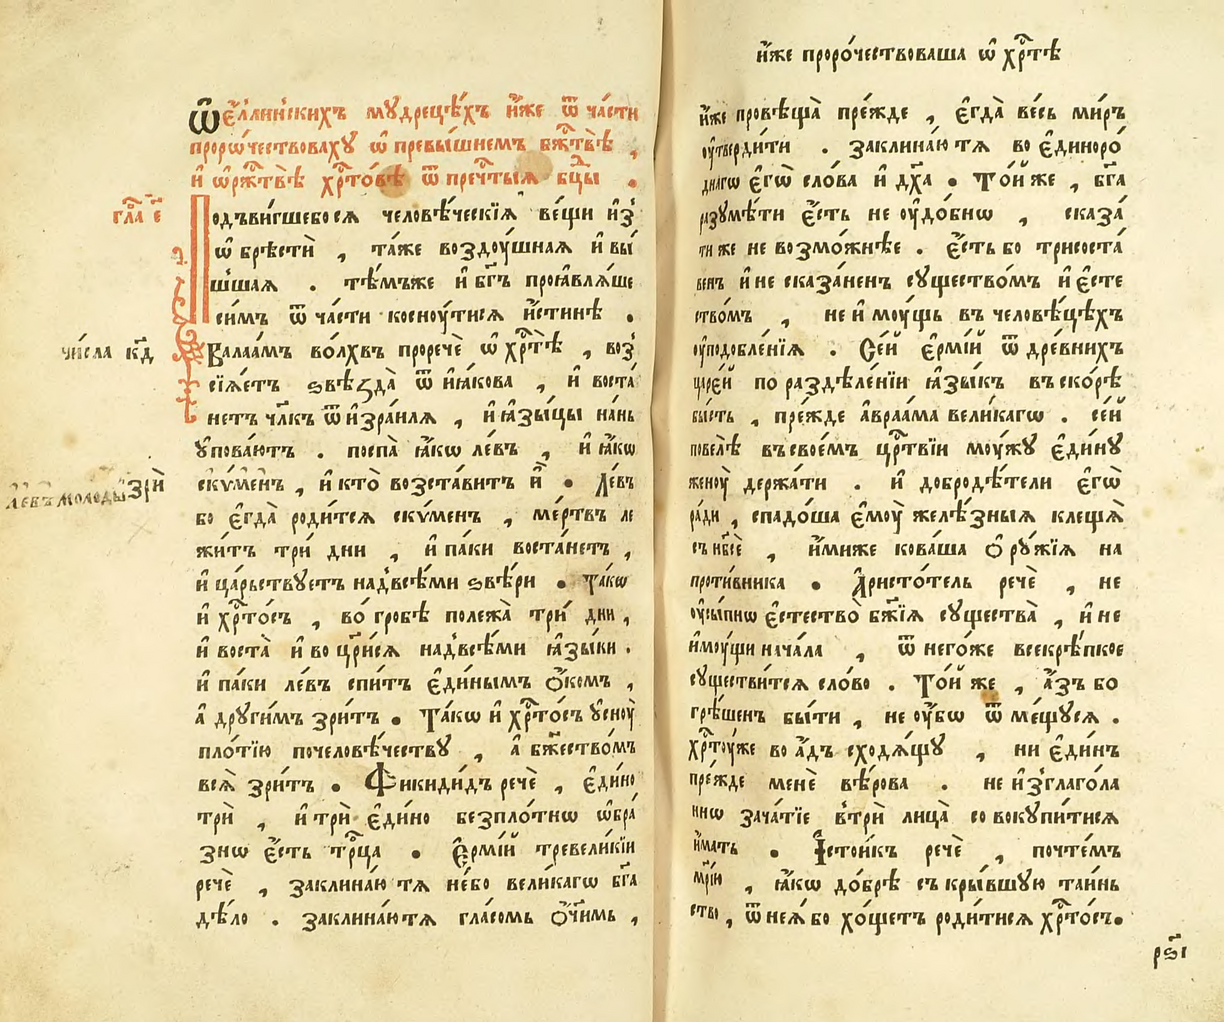 Ѿ е҆́ллиньскихъ мꙋдрецѣ́хъ и҆́же ѿ ча́сти
проро́чествоваху ѡ҆ превы́шнемъ бж҃твѣ̀ ,
и҆ ѡ҆ рж҃твѣ̀ хр҃то́вѣ ѿ преч҃тыꙗ бц҃ы .
гла҃ е҃
Подъви́гшебосѧ человѣ́ческїѧ ве́щи и҆з̾
ѡ҆брѣсти̑ , та́же воздꙋ́шнаꙗ и҆ вы́
шшаꙗ . тѣ́мъже и҆ бг҃ъ просѧвлѧ́ше
сѝмъ ѿ ча́сти коснꙋ́тисѧ и҆́стинѣ .
чи́сла к҃д
Валаа́мъ во́лхвъ прорече̏ ѡ҆ хр҃тѣ̀ , воз̾
сїѧ́етъ ѕвѣзда̀ ѿ и҆ꙗ́кова , и҆ воста́
нетъ чл҃къ ѿ и҆зра́илѧ , и҆ ꙗ҆зы́цы на́нь
ᲂу҆пова́ютъ . поспа̀ ꙗ҆́кѡ ле́въ , и҆ ꙗ҆́кѡ
ле́въ молоды зрѝ
скѵ́менъ , и҆ кто̀ возста́витъ и҆̀ . Ле́въ
бо є҆гда̀ роди́тсѧ скѵ́менъ , ме́ртвъ ле
жи́тъ трѝ дни , и҆ па́ки воста́нетъ ,
и҆ ца́рьствꙋетъ над̾всѣ́ми ѕвѣ́ри . та́кѡ
и҆ хр҃то́съ , во́ гробѣ полежа̀ трѝ дни ,
и҆ воста̀ и҆ во цр҃и́сѧ над̾всѣ́ми ꙗ҆зы́ки .
и҆ па́ки ле́въ спи́тъ є҆ди́нымъ ѻ҆́комъ ,
а҆ дрꙋги́мъ зри́тъ . Та́кѡ и҆ хр҃то́съ ᲂу҆снꙋ̀
пло́тїю почеловѣ́чествꙋ , а҆ бж҃ество́мъ
всѧ̑ зри́тъ . Фикиди́дъ рече̏ , є҆ди́но
трѝ , и҆ трѝ є҆ди́но безпло́тнѡ ѡ҆бра́
знѡ є҆́сть тр҃ца . Є҆рмі́й тревели́кїи
рече̏ , заклина́ю тѧ не́бо вели́кагѡ бг҃а
дѣ́ло . заклина́ю тѧ гла́сомъ ѻ҆́чимъ ,
и҆́же проро́чествоваша ѡ҆ хр҃тѣ̀
и҆́же провѣща̀ пре́жде , є҆гда̀ ве́сь ми́ръ
ᲂу҆тверди́ти . заклина́ю тѧ во є҆диноро́
днагѡ є҆гѡ̀ сло́ва и҆ дх҃а . То́и же , бг҃а
разꙋмѣ́ти є҆́сть не ᲂу҆до́бнѡ , сказа́
ти же не возмо́жнѣе . є҆́сть бо трисоста́
венъ и҆ не сказа́ненъ сꙋщество́мъ и҆ є҆сте
ство́мъ , не и҆мꙋ́щь въ человѣ́цѣхъ
ᲂу҆подобле́нїѧ . Се́й є҆рмі́й ѿ дре́внихъ
царе́й по раздѣле́нїи ꙗ҆зы́къ въско́рѣ
бы́сть , пре́жде а҆враа́ма вели́кагѡ . се́й
повелѣ̀ въсвое́мъ цр҃твїи мꙋ́жꙋ є҆ди́нꙋ
женꙋ̀ держа́ти . и҆ добродѣ́тели є҆гѡ̀
ра́ди , спадо́ша є҆мꙋ̀ желѣ́зныѧ клещѧ̀
съ нб҃се̏ , и҆́миже кова́ша ѻ҆рꙋ́жїѧ на
проти́вника . А҆ристо́тель рече̏ , не
ᲂу҆сы́пнѡ є҆стество̀ бж҃їѧ сꙋщества̀ , и҆ не
и҆мꙋ́щи нача́ла , ѿ него́же всекрѣ́пкое
сꙋществи́тсѧ сло́во . То́и же , а҆́зъ бо
грѣ́шенъ бы́ти , не ᲂу҆́бѡ ѿ ме́щꙋсѧ .
хр҃тꙋ́же во а҆́дъ сходѧ́щꙋ , ни є҆ди́нъ
пре́жде мене̏ вѣ́рова . не и҆з̾глаго́ла
ннѡ зача́тїе в̾трѝ лица̀ совокупи́тисѧ
и҆́мать . І҆сто́икъ рече̏ , почте́мъ
мр҃і́ю , ꙗ҆́кѡ до́брѣ съкры́вшꙋю та́инь
ство , ѿ неѧ́ бо хо́щетъ роди́тисѧ хр҃то́съ .
рѕ҃і